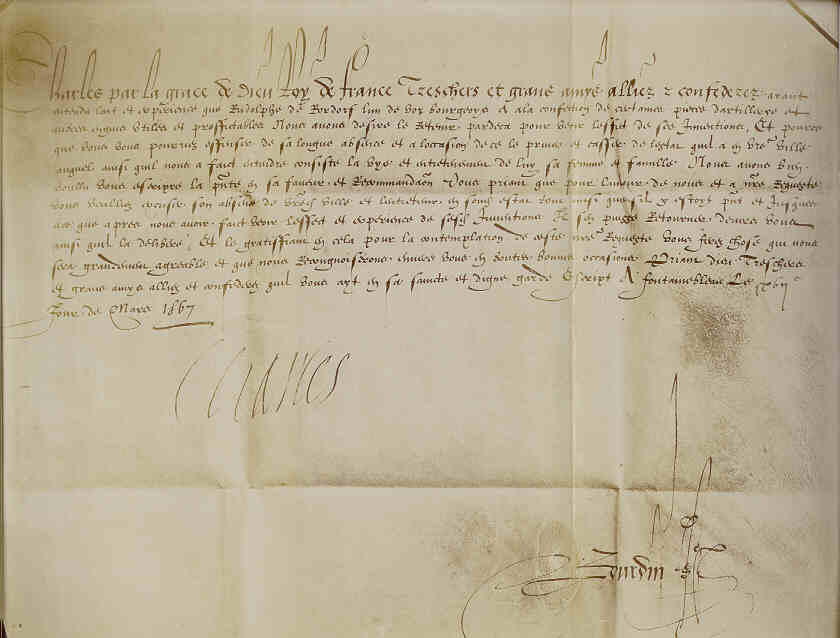 Charles par la grace de Dieu Roy de france Treschers et grans amys alliez & confederez ayant
entendu loit et experience que Rudolphe de Bondorf lun de voz bourgeoys A la confection de certaines pieces dartillerye et
autres engins utiles et proffitables Nous avons desire le Retenir pardeca pour veoir leffect de ses Inventions, Et pource
que vous vous pourriez offenser de sa longue absence et a loccasion de ce le priver et casser de lestat quil a en vre ville
auquel ainsi quil nous a faict entendre consiste la vye et entretenement de luy sa femme et famille Nous avons bien
voullu vous escripre la pnte en sa faveur et Recommandaon Vous priant que pour lamour de nous et a nre Requeste
vous veuillez excuser son absence de vredicte ville et lentretenir en sond estat tout ainsi que sil y estoyt pnt et Jusques
ace que apres nous avoir faict veoir leffect et experience de sesd Inventions Il sen puysse Retourner devers vous
ainsi quil la delibere, Et le gratiffiant en cela pour la contemplation de ceste nre Requeste vous ferez chose qui nous
sera grandement agreable et que nous Recongnoistrons envers vous en toutes bonnes occasions Priant dieu Treschers
et grans amys alliez et confederez quil vous ayt en sa saincte et digne garde Escript A fontainebleau Le
Jour de Mars 1567
Charles
Bourdin